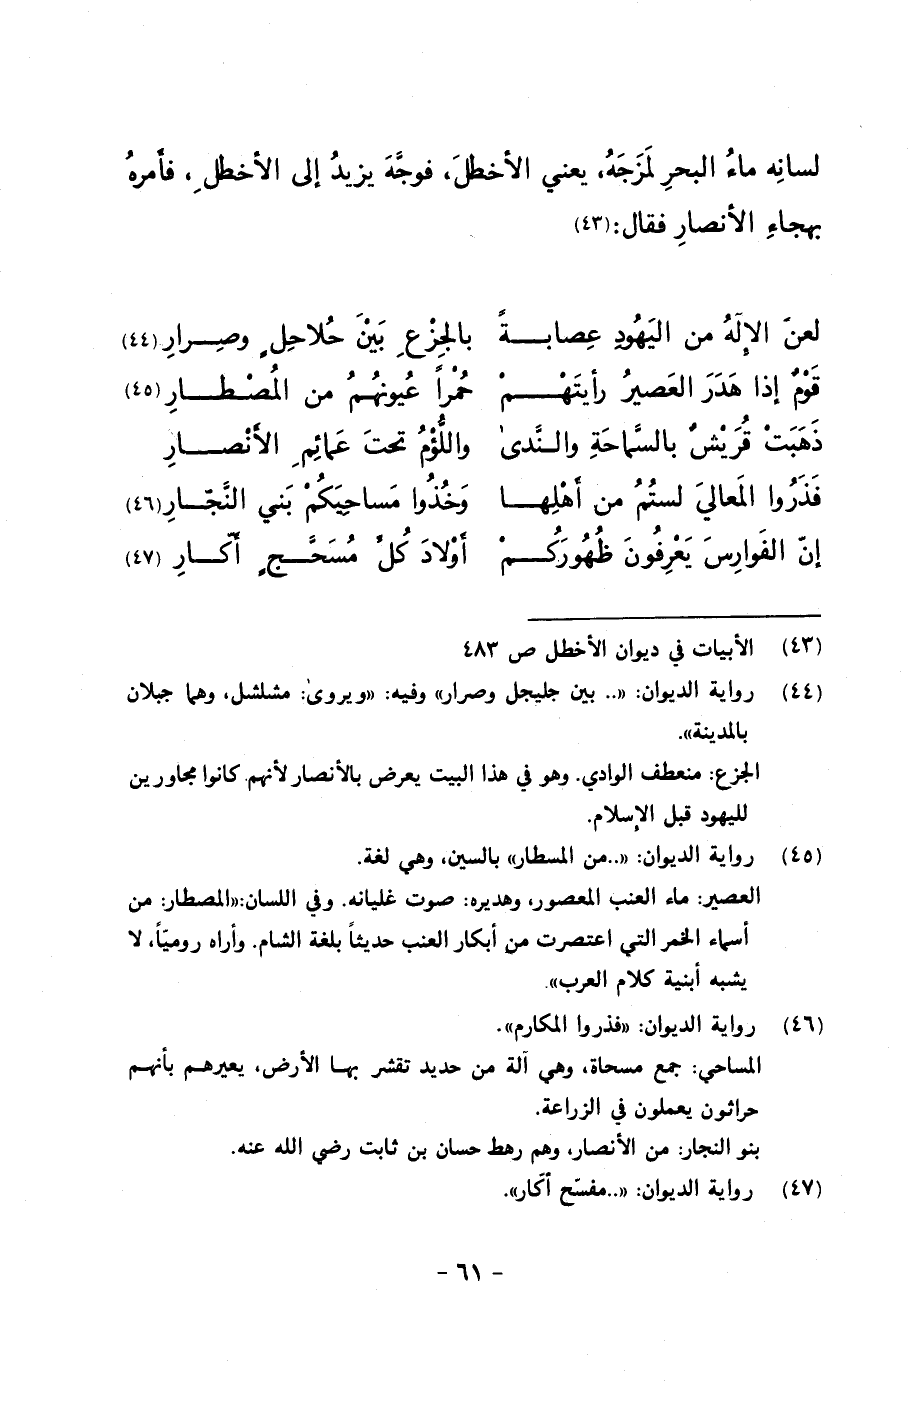 لسانِه ماءُ البحرِ لَمَزَجَهُ، يعني الأخطلَ، فوجَّهَ يزيدُ إلى الأخطلِ، فأمرهُ
بهجاءِ الأنصارِ فقال:(٤٣)
لعنَ الإِلَهُ من اليَهُودِ عِصابـــةً بالجِزْعِ بَيْنَ حُلاحِلٍ وصِـــرارِ(٤٤)
قَوْمٌ إذا هَدَرَ العَصيرُ رأيتَهُـــــمْ حُمْراً عُيونُهُمُ من المُصْطـــارِ (٤٥)
ذَهَبَتْ قُرَيْشٌ بالسَّماحَةِ والنَّدىٰ واللُّؤْمُ تحتَ عَمائِمِ الأنْصـــارِ
فَذَرُوا المَعاليَ لستُمُ من أهْلِهـــا وَخُذُوا مَساحِيَكُمْ بَني النَّجّـارِ(٤٦)
إنّ الفَوارِسَ يَعْرِفُونَ ظُهُورَكُـــمْ أوْلادَ كُلِّ مُسَحَّـــجٍ أكّـــارِ (٤٧)
(٤٣) الأبيات في ديوان الأخطل ص ٤٨٣
(٤٤) رواية الديوان: «.. بين جليجل وصرار» وفيه: «ويروىٰ: مشلشل، وهما جبلان
بالمدينة».
الجزع: منعطف الوادي. وهو في هذا البيت يعرض بالأنصار لأنهم كانوا مجاورين
لليهود قبل الإسلام.
(٤٥) رواية الديوان: «..من المسطار» بالسين، وهي لغة.
العصير: ماء العنب المعصور، وهديره: صوت غليانه. وفي اللسان:«المصطار: من
أسماء الخمر التي اعتصرت من أبكار العنب حديثاً بلغة الشام. وأراه روميّاً، لا
يشبه أبنية كلام العرب».
(٤٦) رواية الديوان: «فذروا المكارم».
المساحي: جمع مسحاة، وهي آلة من حديد تقشر بهـا الأرض، يعيرهـم بأنهـم
حراثون يعملون في الزراعة.
بنو النجار: من الأنصار، وهم رهط حسان بن ثابت رضي الله عنه.
(٤٧) رواية الديوان: «..مفسّح أكّار».
- ٦١ -